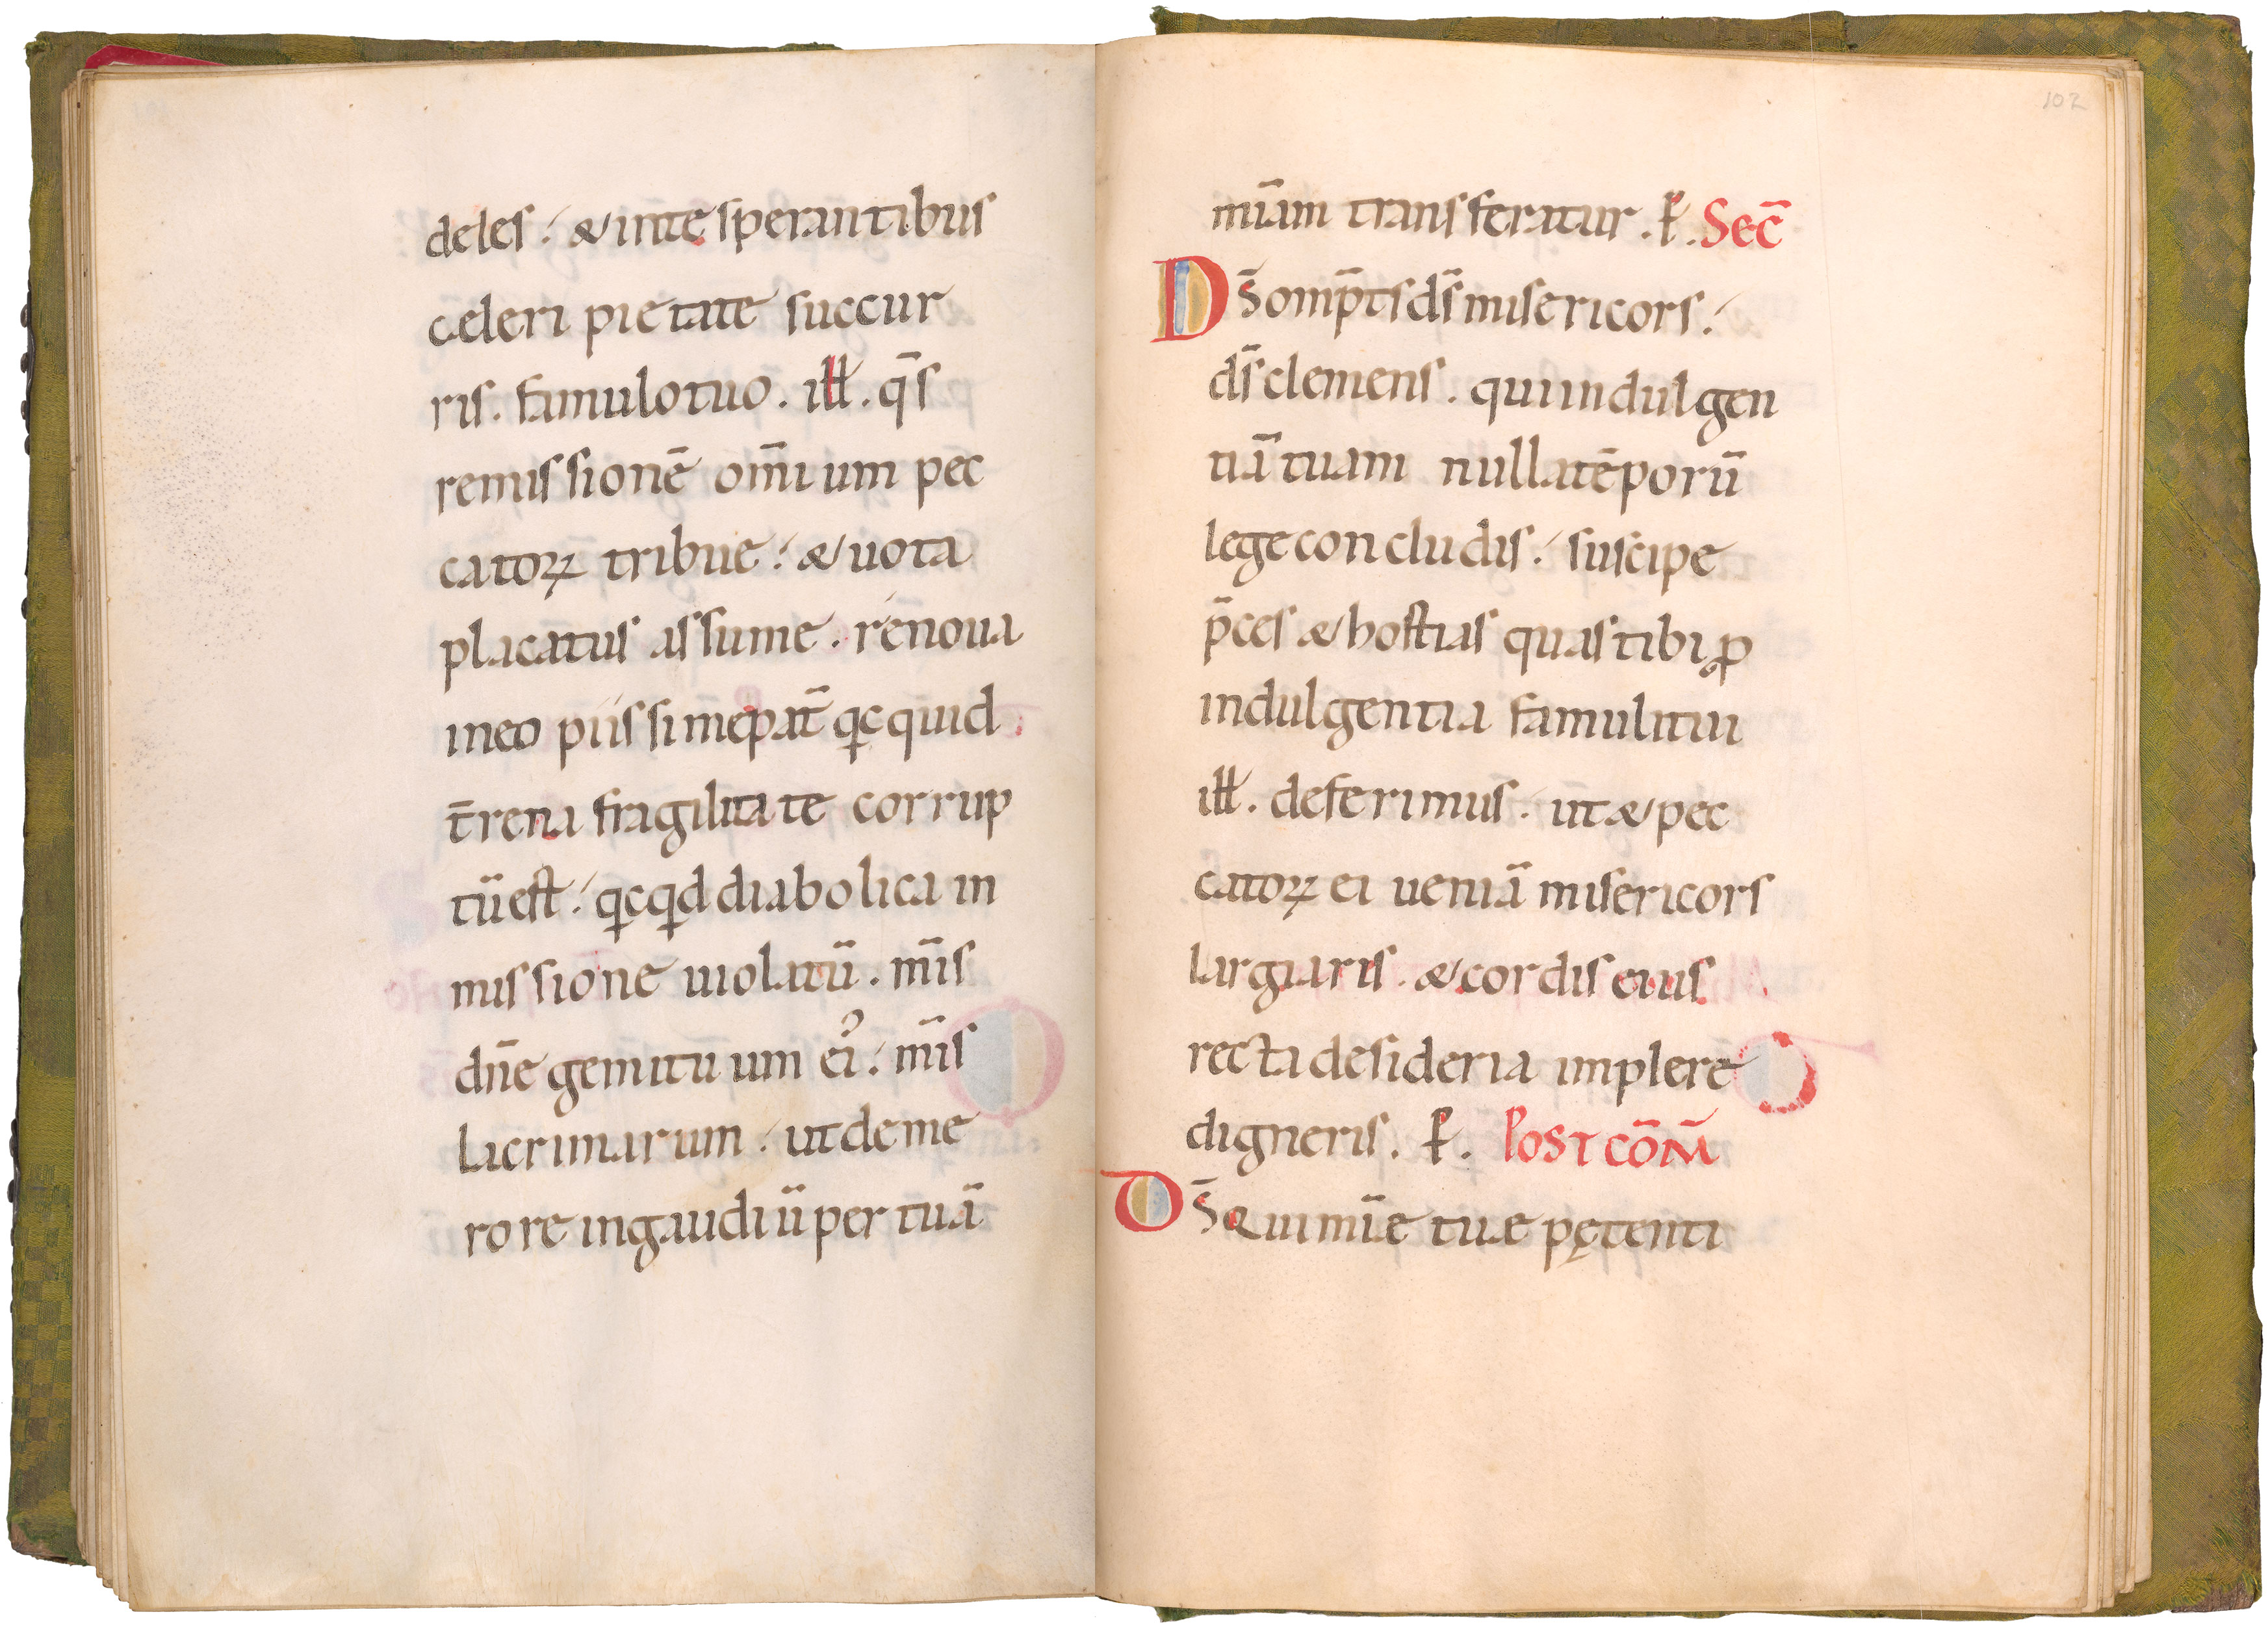 deles. & inte sperantibus
celeri pietate succur
ris. famulo tuo. iƚƚ. q̄s
remissionē om̄ium pec
catoꝝ tribue. & uota
placatus assume. renoua
in eo piissime pat̄ qcquid
t̄rena fragilitate corrup
tū est. qcqd diabolica in
missione uiolatū. mīs
dn̄e gemituum ei᾿. mīs
lacrimarum. ut de me
rore in gaudiū per tuā
102
mīam transferatur. P̄. Sec̄
D̄S omp̄ts d̄s misericors.
d̄s clemens. qui indulgen
tiā tuam nulla tēporū
lege concludis. suscipe
p̄ces & hostias quas tibi ꝓ
indulgentia famuli tui
iƚƚ. deferimus. ut & pec
catoꝝ ei ueniā misericors
largiaris. & cordis eius
recta desideria implere
digneris. P̄. Post cōm̄
D̄S qui mīe tuae pętenti